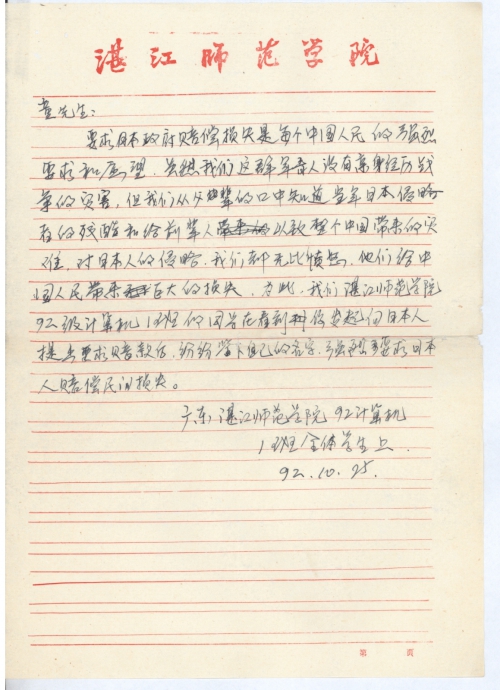 湛江师范学院
童先生:
要求日本政府赔偿损失是每个中国人民的强烈
要求和愿望。虽然我们这群年青人没有亲身经历战
争的灾害,但我们从父辈的口中知道当年日本侵略
者的残酷和给前辈人以致整个中国带来的灾
难,对日本人的侵略,我们都无比愤怒。他们给中
国人民带来巨大的损失,为此,我们湛江师范学院
92级计算机1班的同学在看到你发起向日本人
提出要求赔款后,纷纷签下自己的名字,强烈要求日本
人赔偿民间损失。
广东湛江师范学院92计算机
1班全体学生上
92.10.25.
第 页